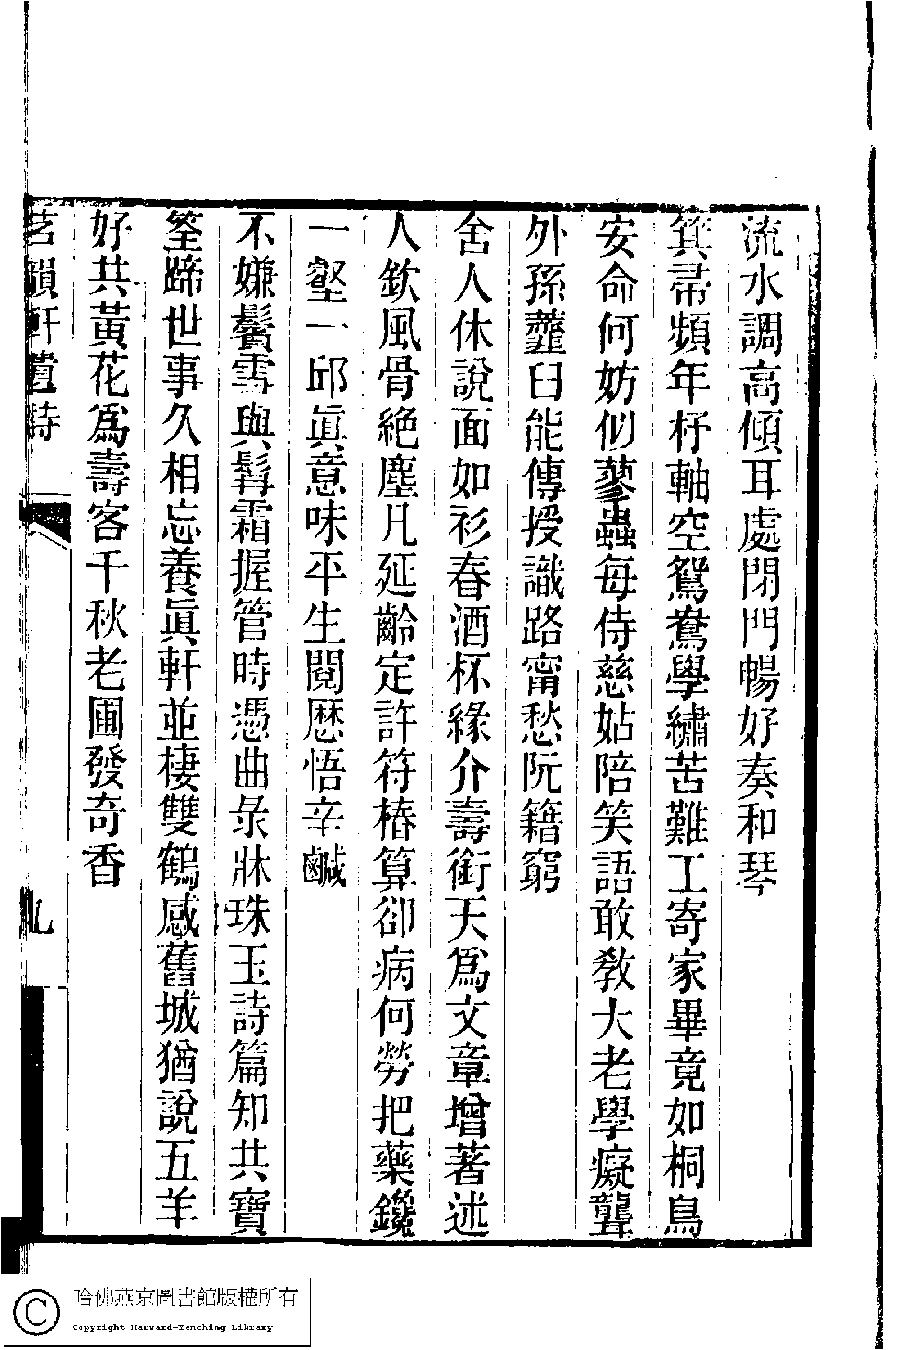 流水調高傾耳處閉門暢好奏和琴
箕帚頻年杼軸空鴛鴦學繡苦難工寄家畢竟如桐鳥
安命何妨似蓼蟲每侍慈姑陪笑語敢教大老學癡聾
外孫虀臼能傳授識路甯愁阮籍窮
舍人休說面如衫春酒杯緣介壽銜天爲文章增著述
人欽風骨絕塵凡延齡定許符椿算卻病何勞把藥鑱
一壑一邱眞意味平生閱歷悟辛鹹
不嫌鬢雪與髯霜握管時憑曲彔牀珠玉詩篇知共寶
筌蹄世事久相忘養眞軒並棲雙鶴感舊城猶說五羊
好共黃花爲壽客千秋老圃發奇香
茗韻軒遺詩
九
哈佛燕京圖書館版權所有
Copyright Harvard-Yenching Library